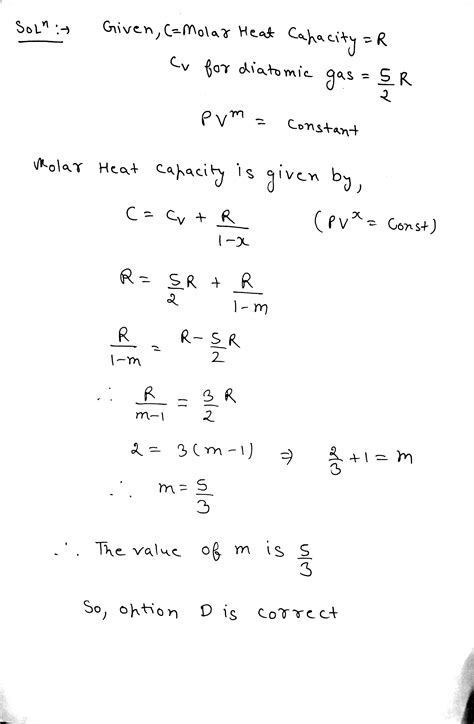 Solⁿ :→ Given, C=Molar Heat Capacity = R
Cv for diatomic gas = 5/2 R
PV^m = Constant
Molar Heat Capacity is given by,
C = Cv + R/(1-x) (PV^x = Const)
R = 5/2 R + R/(1-m)
R/(1-m) = R - 5/2 R
∴ R/(m-1) = 3/2 R
2 = 3(m-1) ⇒ 2/3 + 1 = m
∴ m = 5/3
∴ The value of m is 5/3
So, option D is correct